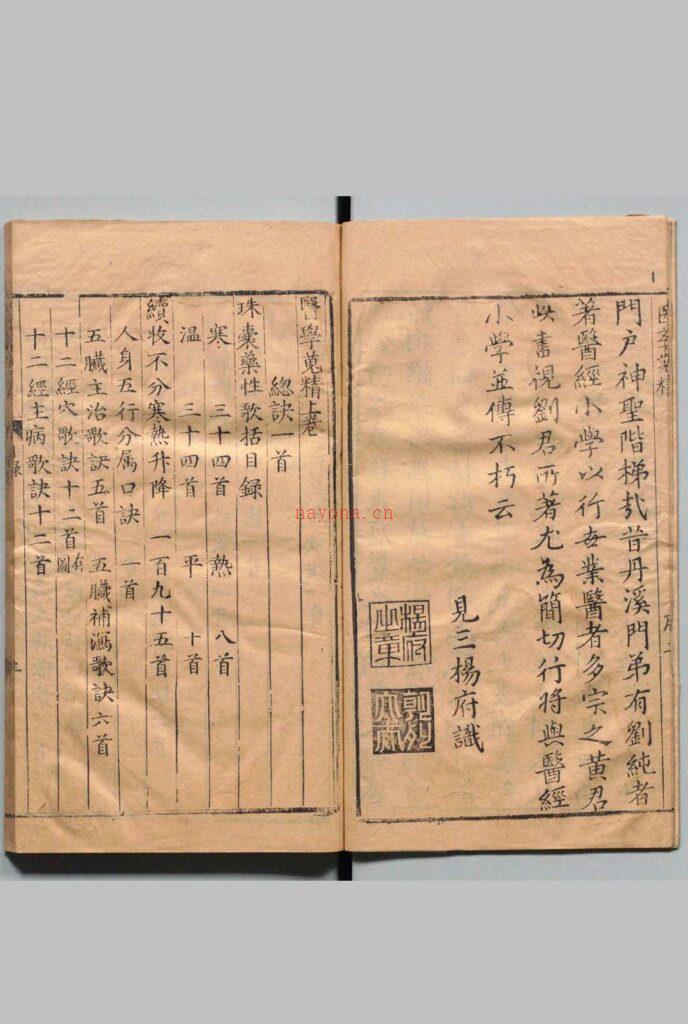 門户神聖階梯㢤昔丹溪門弟有劉純者
著醫經小學以行世業醫者多宗之黃君
此書視劉君所著尤為簡切行將與醫經
小學並傳不朽云
見三楊府識
醫學蒐精上卷
緫訣一首
珠囊藥性歌括目録
寒 三十四首 熱 八首
温 三十四首 平 十首
續收不分寒熱升降 一百九十五首
人身五行分属口訣 一首
五臟主治歌訣五首 五臟補瀉歌訣六首
十二經穴歌訣十二首有圖
十二經主病歌訣十二首
nayona.cn